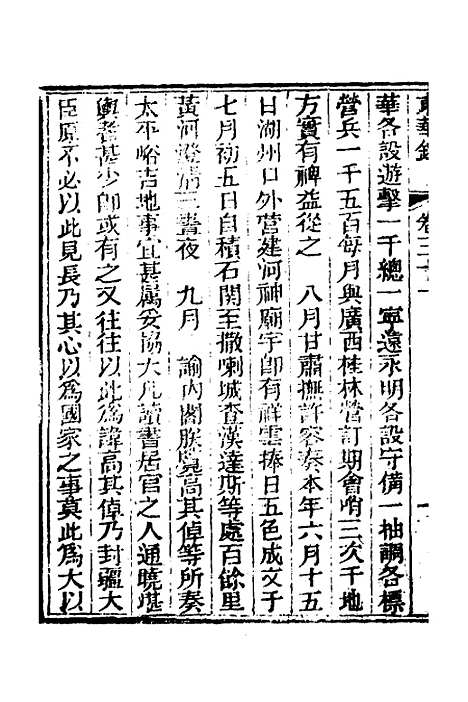 東華錄 卷三十一
華各設遊擊一千總一寧遠永明各設守備一抽調各標
營兵一千五百每月與廣西桂林營訂期會哨三次于地
方實有裨益從之 八月甘肅撫許容奏本年六月十五
日湖州口外營建河神廟宇卽有祥雲捧日五色成文于
七月初五日自積石關至撒喇城查漢達斯等處百餘里
黃河澄清三晝夜 九月 諭內閣朕覽高其倬等所奏
太平峪吉地事宜甚屬妥協大凡讀書居官之人通曉堪
輿者甚少卽或有之又往往以此為諱高其倬乃封疆大
臣原不必以此見長乃其心以為國家之事莫此為大以